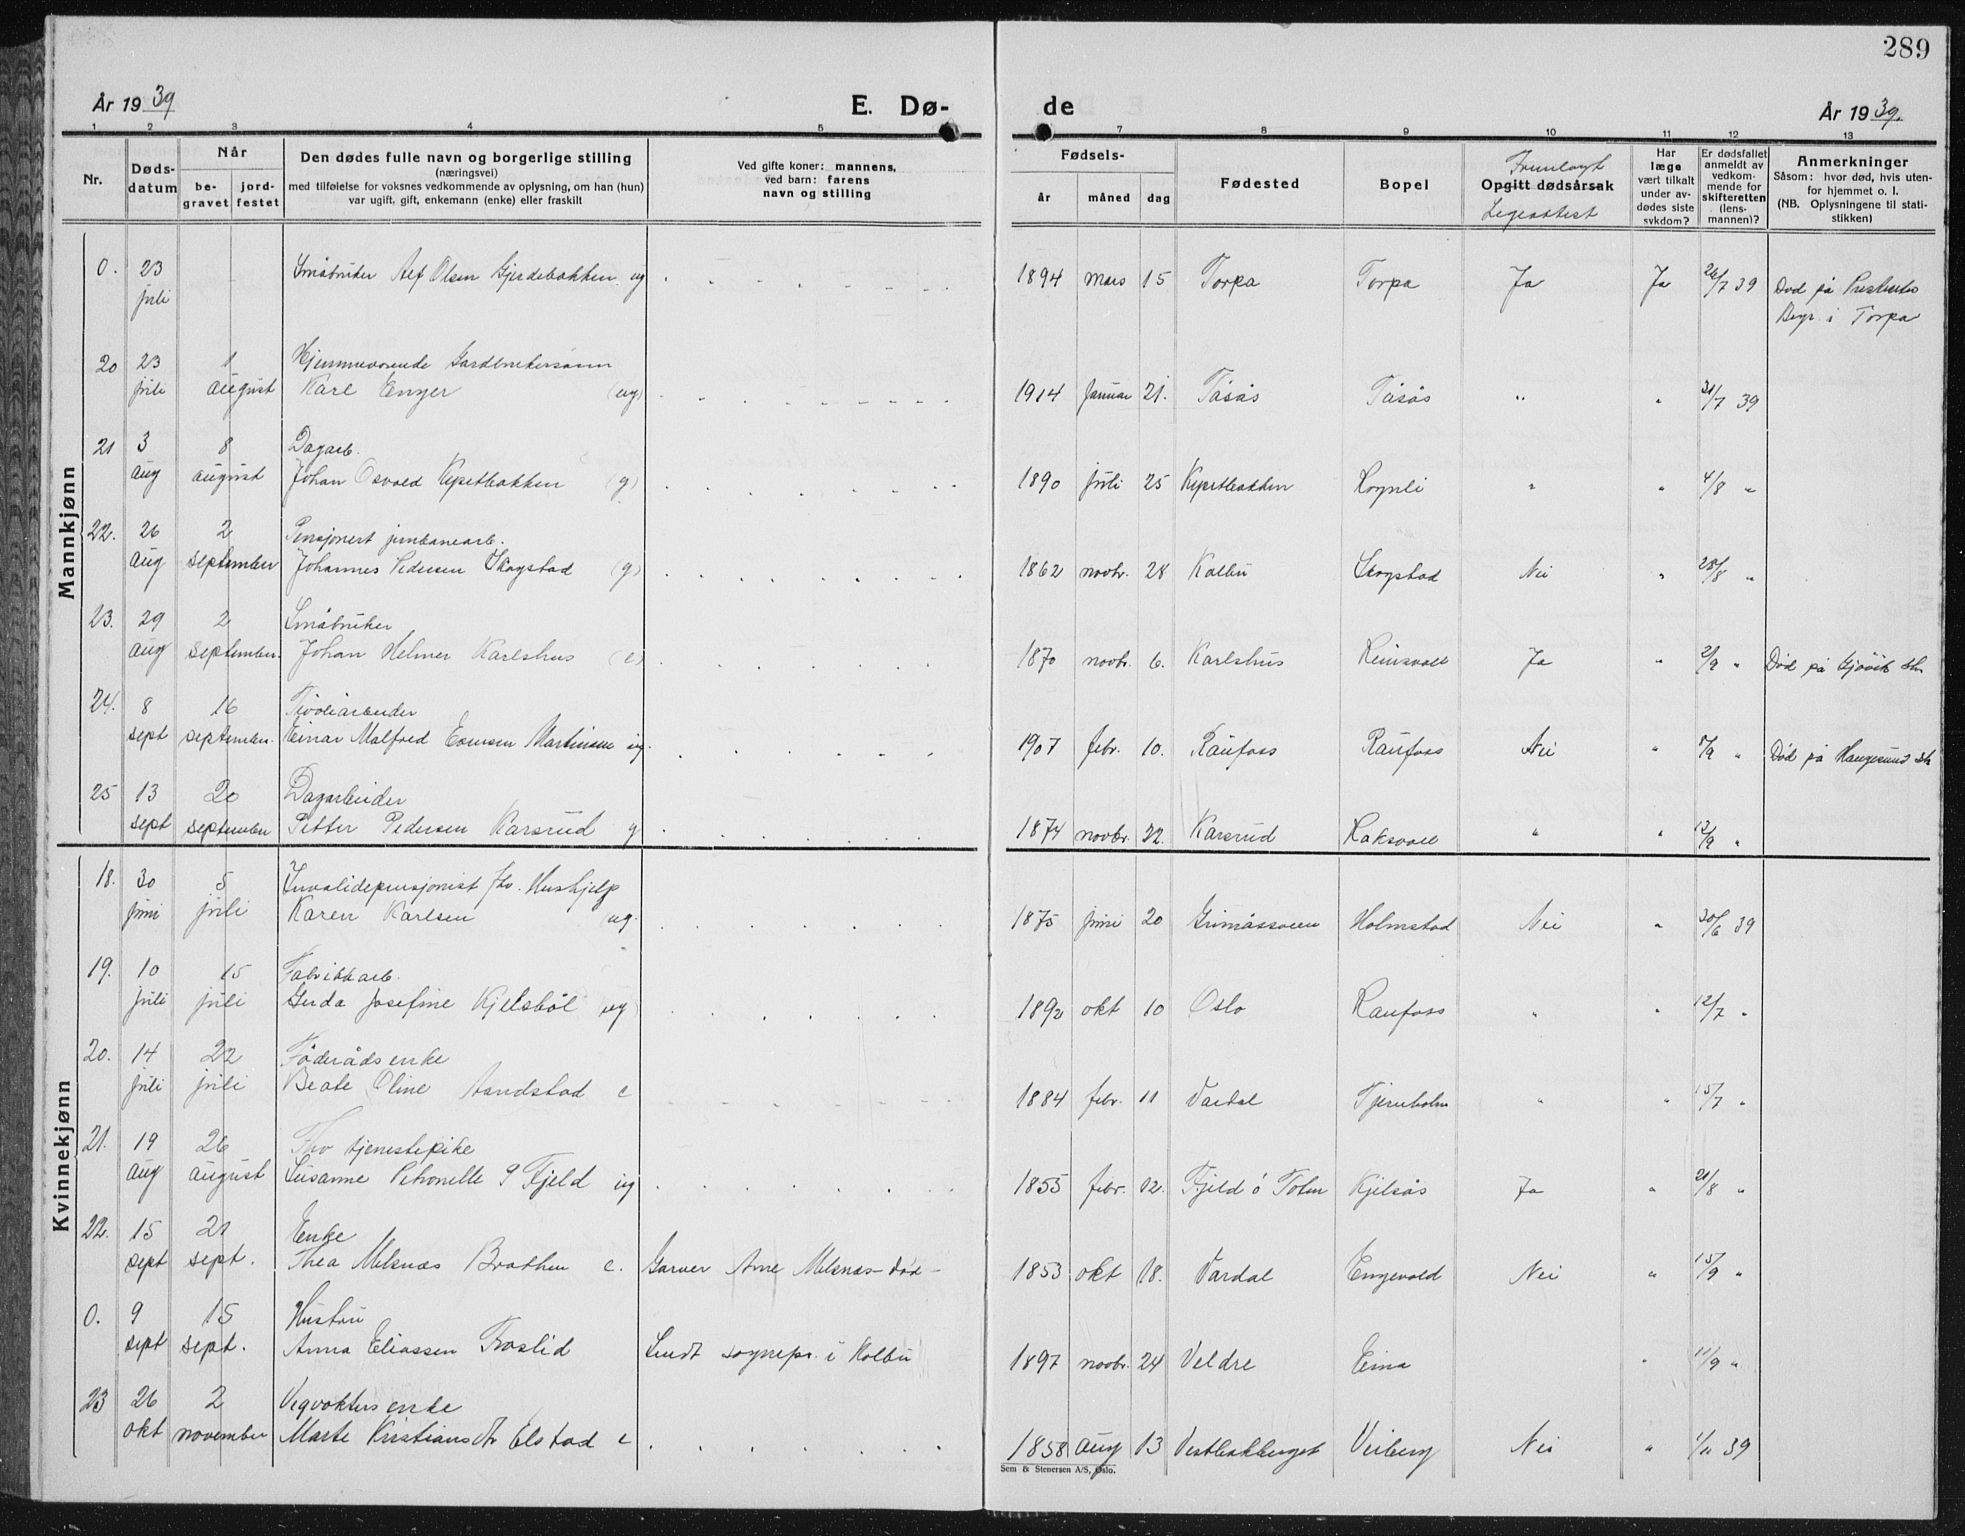 289
År 1939
E. Dø-
de
År 1939.
1 2 3 4 5 7 8 9 10 11 12 13
Nr.
Døds-
datum
Når
be-
gravet
jord-
festet
Den dødes fulle navn og borgerlige stilling
(næringsvei)
med tilføielse for voksnes vedkommende av oplysning, om han (hun)
var ugift, gift, enkemann (enke) eller fraskilt
Ved gifte koner: mannens,
ved barn: farens
navn og stilling
Fødsels-
år måned dag
Fødested
Bopel
Fremlagt
Opgitt dødsårsak
Legeattest
Har
læge
vært tilkalt
under av-
dødes siste
sykdom?
Er dødsfallet
anmeldt av
vedkom-
mende for
skifteretten
(lens-
mannen)?
Anmerkninger
Såsom: hvor død, hvis uten-
for hjemmet o. l.
(NB. Oplysningene til stati-
stikken)
Mannkjønn
0. 23 Småbruker Alf Olsen Gjerdebakken ug 1894 mars 15 Torpa Torpa Ja Ja 26/7 39 Død på
juli Begr. i Torpa
20 23 1 Hjemmeværende Gardbrukersønn
juli august Karl Enger (ug) 1914 Januar 21. Tåsås Tåsås " " 31/7 39
21 3 8 Dagarb.
aug august Johan Osvald (g) 1890 juli 25 " " 4/8 "
22. 26 2 Pensjonert jernbanearb.
aug september Johannes Pedersen Skogstad (g) 1862 novbr. 28 Kolbu Skogstad Nei " 28/8 "
23. 29 2 Småbruker
aug september. Johan Helmer Karlshus (e) 1870 novbr. 6. Karlshus Reinsvoll Ja " 2/9 " Død på Gjøvik sh
24. 8 16 Tivoliarbeider
sept september. Einar Malfred Martinsen ug. 1907 febr. 10. Raufoss Raufoss Nei " /9 " Død på Haugesund sh
25 13 20 Dagarbeider
sept september Petter Pedersen Karsrud g 1874 novbr. 22. Karsrud " " /9 "
Kvinnekjønn
18. 30 5 Invalidepensjonist fhv. Hushjelp
juni juli Karen Karlsen ug. 1875 juni 20 Holmstad Nei " 30/6 39
19. 10 15 Fabrikkarb.
juli juli Gerda Josefine Kjelsbøl ug 1892 okt 10 Oslo Raufoss " " 12/7 "
20. 14 22 Føderådsenke
juli juli Beate Oline Aandstad e 1884 febr. 11 Vardal Tjernholm " " 15/7 "
21. 19 26 Fhv tjenestepike
aug august Susanne Petronelle P Fjeld ug 1855 febr. 12. Fjeld ø Toten Kjelsås Ja " 21/8 "
22. 15 21 Enke
sept sept. Thea Melsnæs Brathen e. Garver Arne Melsnæs - død - 1853 okt 18. Vardal Engevold Nei " 15/9 "
0. 9 15 Hustru
sept sept. Anna Eliassen Froslid Sendt sognepr. i Kolbu 1897 novbr. 24 Veldre Eina " 11/9 "
23 26 2 Vegvoktersenke
okt november Marte Kristiansdtr Elstad e 1858 aug 13 Vestbakberget Veiberg Nei " 1/11 39
Sem & Stenersen A/S, Oslo.